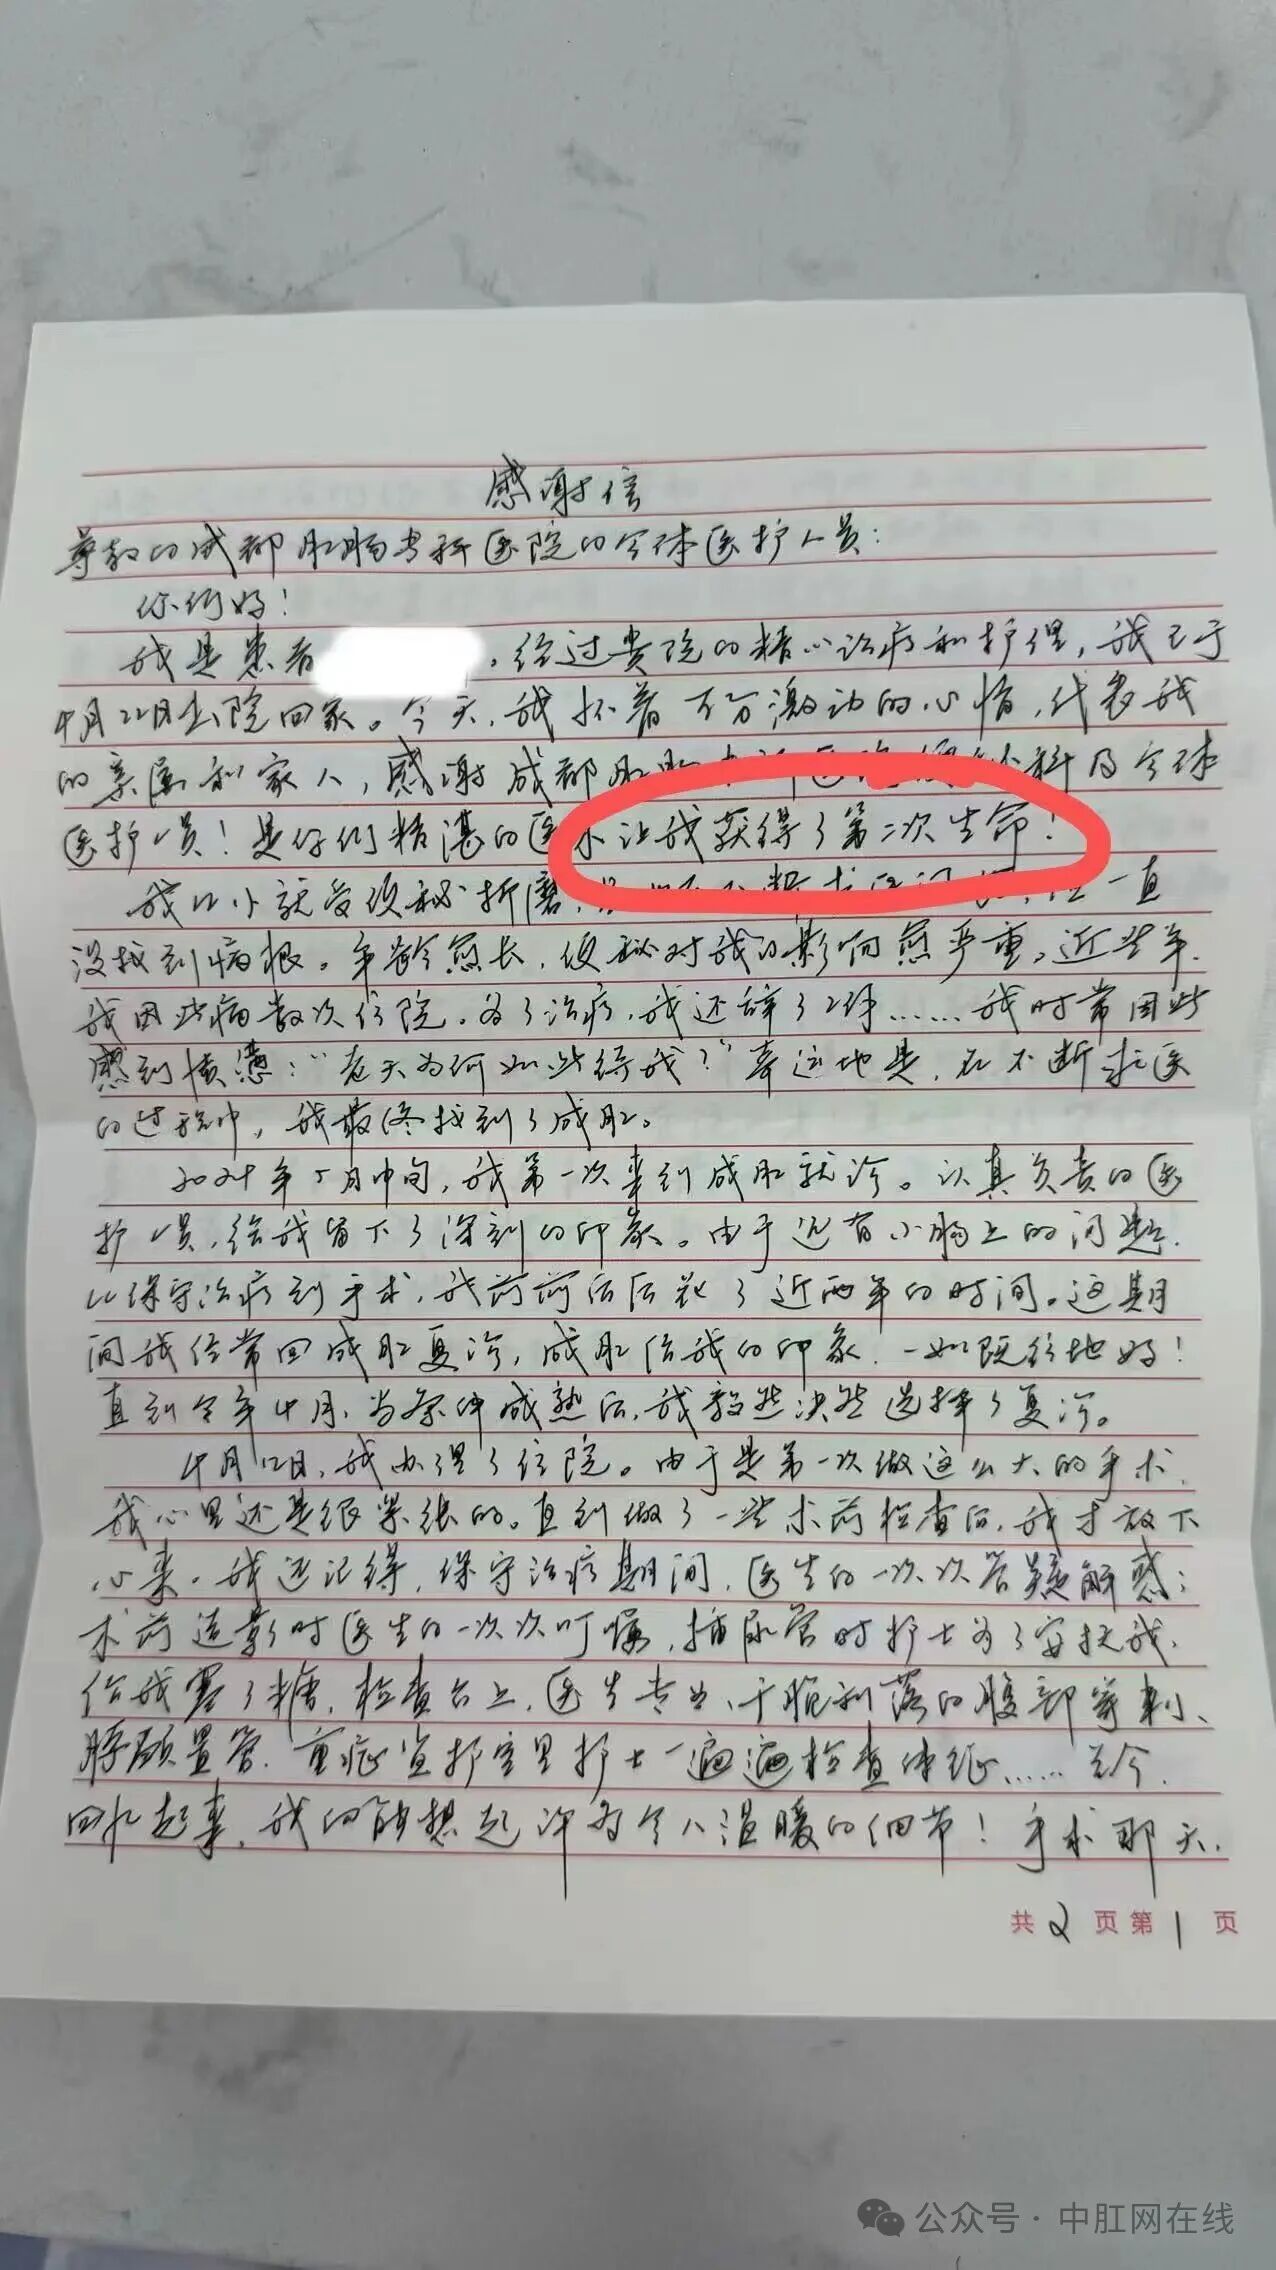 感谢信
尊敬的成都肛肠专科医院的全体医护人员：
你们好！
我是患者 。经过贵院的精心治疗和护理，我已于
4月22日出院回家。今天，我怀着万分激动的心情，代表我
的亲属和家人，感谢成都肛肠 医 科及全体
医护人员！是你们精湛的医术让我获得了第二次生命！
我从小就受便秘折磨， 一直
没找到病根。年龄愈长，便秘对我的影响愈严重。近些年，
我因此病数次住院。为了治疗，我还辞了工作……我时常因此
感到愤懑：“老天为何如此待我？”幸运地是，在不断求医
的过程中，我最终找到了成肛。
2024年5月中旬，我第一次来到成肛就诊。认真负责的医
护人员，给我留下了深刻的印象。由于还有小肠上的问题，
从保守治疗到手术，我前前后后花了近两年的时间。这期
间我经常回成肛复诊，成肛给我的印象，一如既往地好！
直到今年4月，当条件成熟后，我毅然决然选择了复诊。
4月12日，我办理了住院。由于是第一次做这么大的手术，
我心里还是很紧张的。直到做了一些术前检查后，我才放下
心来。我还记得，保守治疗期间，医生的一次次答疑解惑；
术前造影时医生的一次次叮嘱，插尿管时护士为了安抚我，
给我塞了糖，检查台上，医生专业、干脆利落的腹部穿刺、
膀胱置管，重症监护室里护士一遍遍检查体征……至今，
回忆起来，我仍能想起许多令人温暖的细节！手术那天，
共2页第1页
公众号·中肛网在线